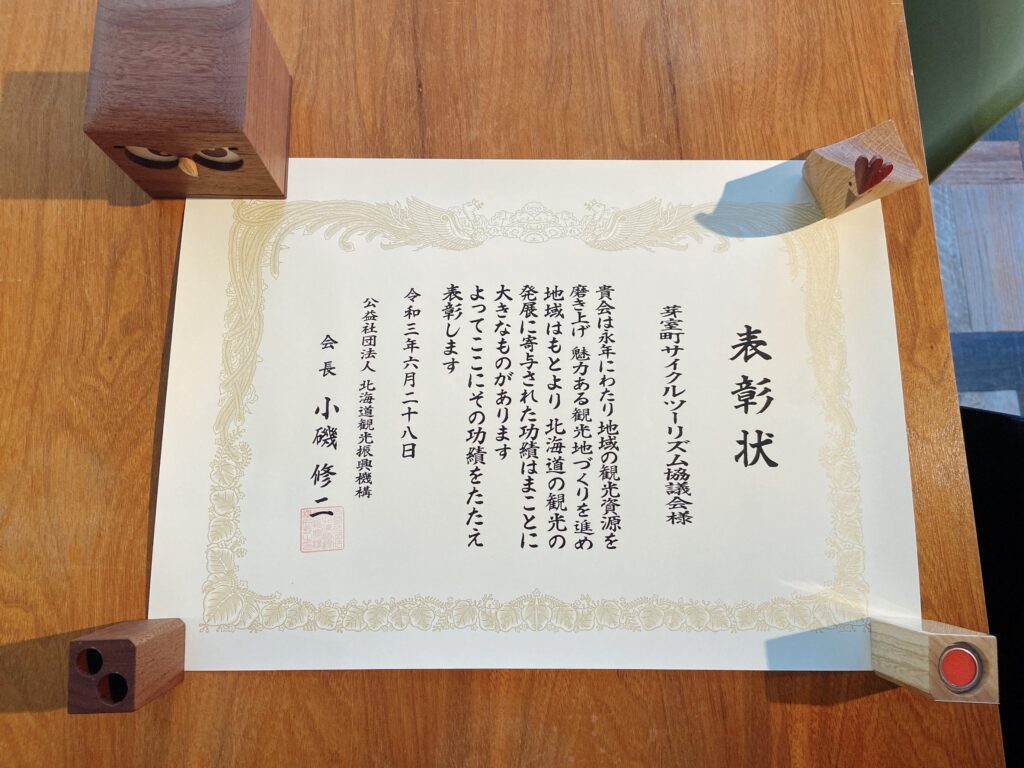 表彰状
芽室町サイクルツーリズム協議会様
貴会は永年にわたり地域の観光資源を
磨き上げ 魅力ある観光地づくりを進め
地域はもとより 北海道の観光の
発展に寄与された功績はまことに
大きなものがあります
よってここにその功績をたたえ
表彰します
令和三年六月二十八日
公益社団法人 北海道観光振興機構
会長 小磯修二